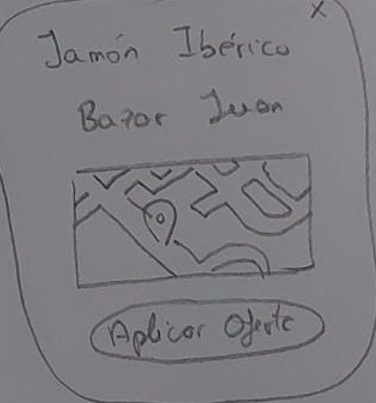 x
Jamón Ibérico
Bazar Juan
Aplicar Oferta